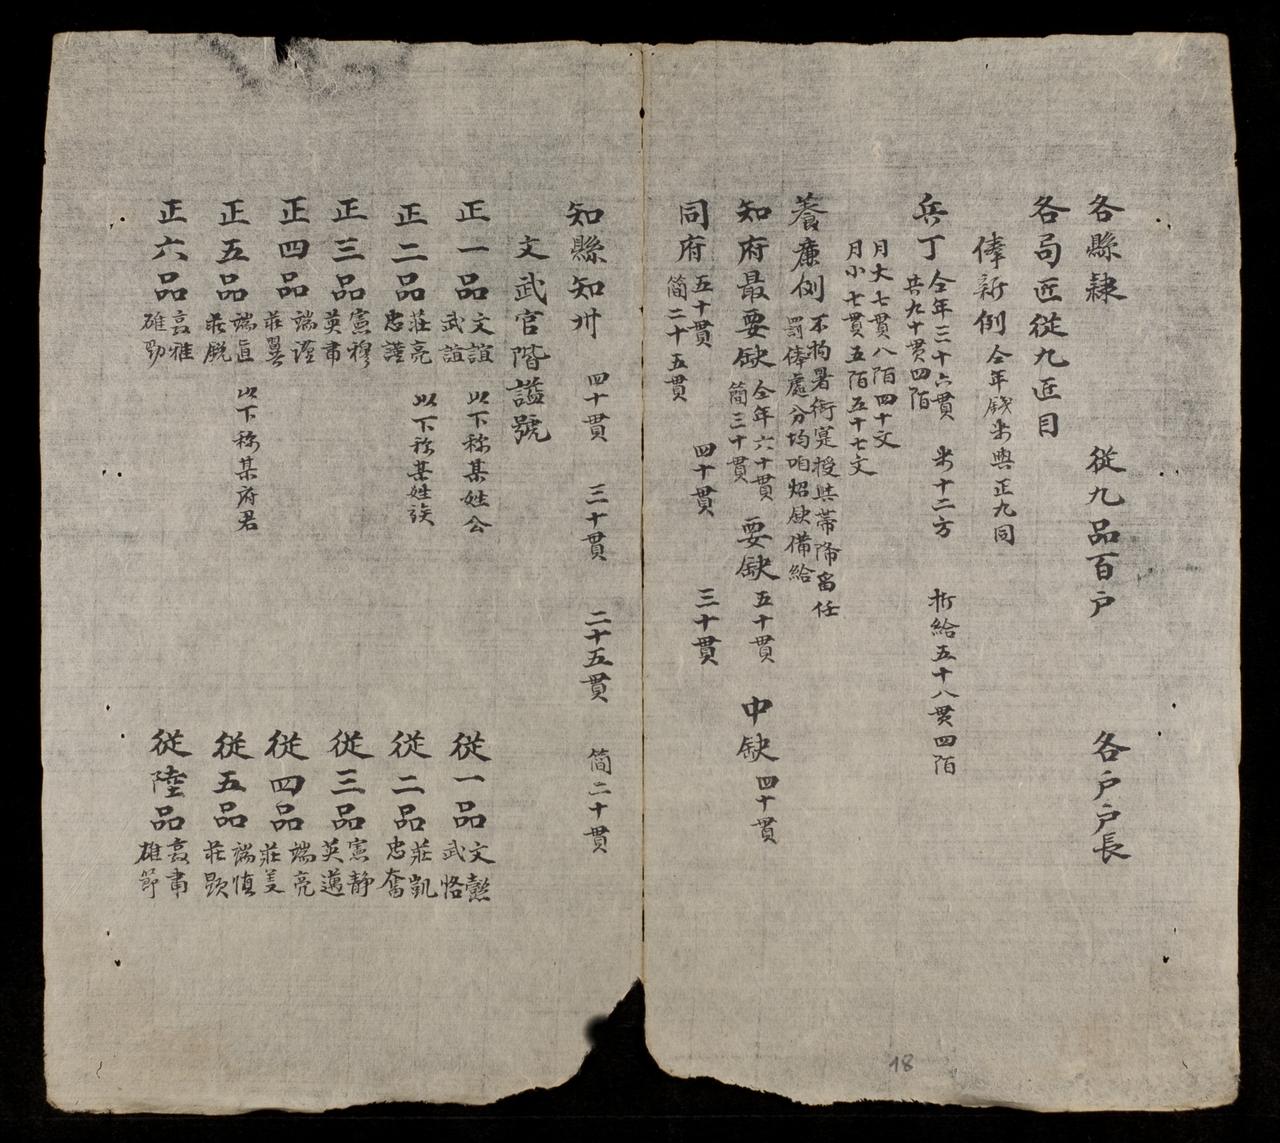 各縣隸 從九品百户 各户户長
各局匠從九匠目
俸新例 仝年錢米與正九同
兵丁 仝年三十六貫 米十二方 折給五十八貫四陌
共九十貫四陌
月大七貫八陌四十文
月小七貫五陌五十七文
養廉例 不拘署衔寔授與帶降畱任
罰俸處分均咱炤缺備給
知府最要缺 仝年六十貫 要缺 五十貫 中缺 四十貫
簡三十貫
同府 五十貫 四十貫 三十貫
簡二十五貫
知縣知州 四十貫 三十貫 二十五貫 簡二十貫
文武官階謚號
正一品 文誼 武誼 以下称某姓公 從一品 文懿 武恪
正二品 莊亮 忠謹 以下称某姓侯 從二品 莊凱 忠奮
正三品 憲穆 英肅 從三品 憲静 英邁
正四品 端謹 莊翼 從四品 端亮 莊美
正五品 端直 莊脱 以下称某府君 從五品 端慎 莊顕
正六品 敦雅 雄勁 從陸品 敦肅 雄節
18